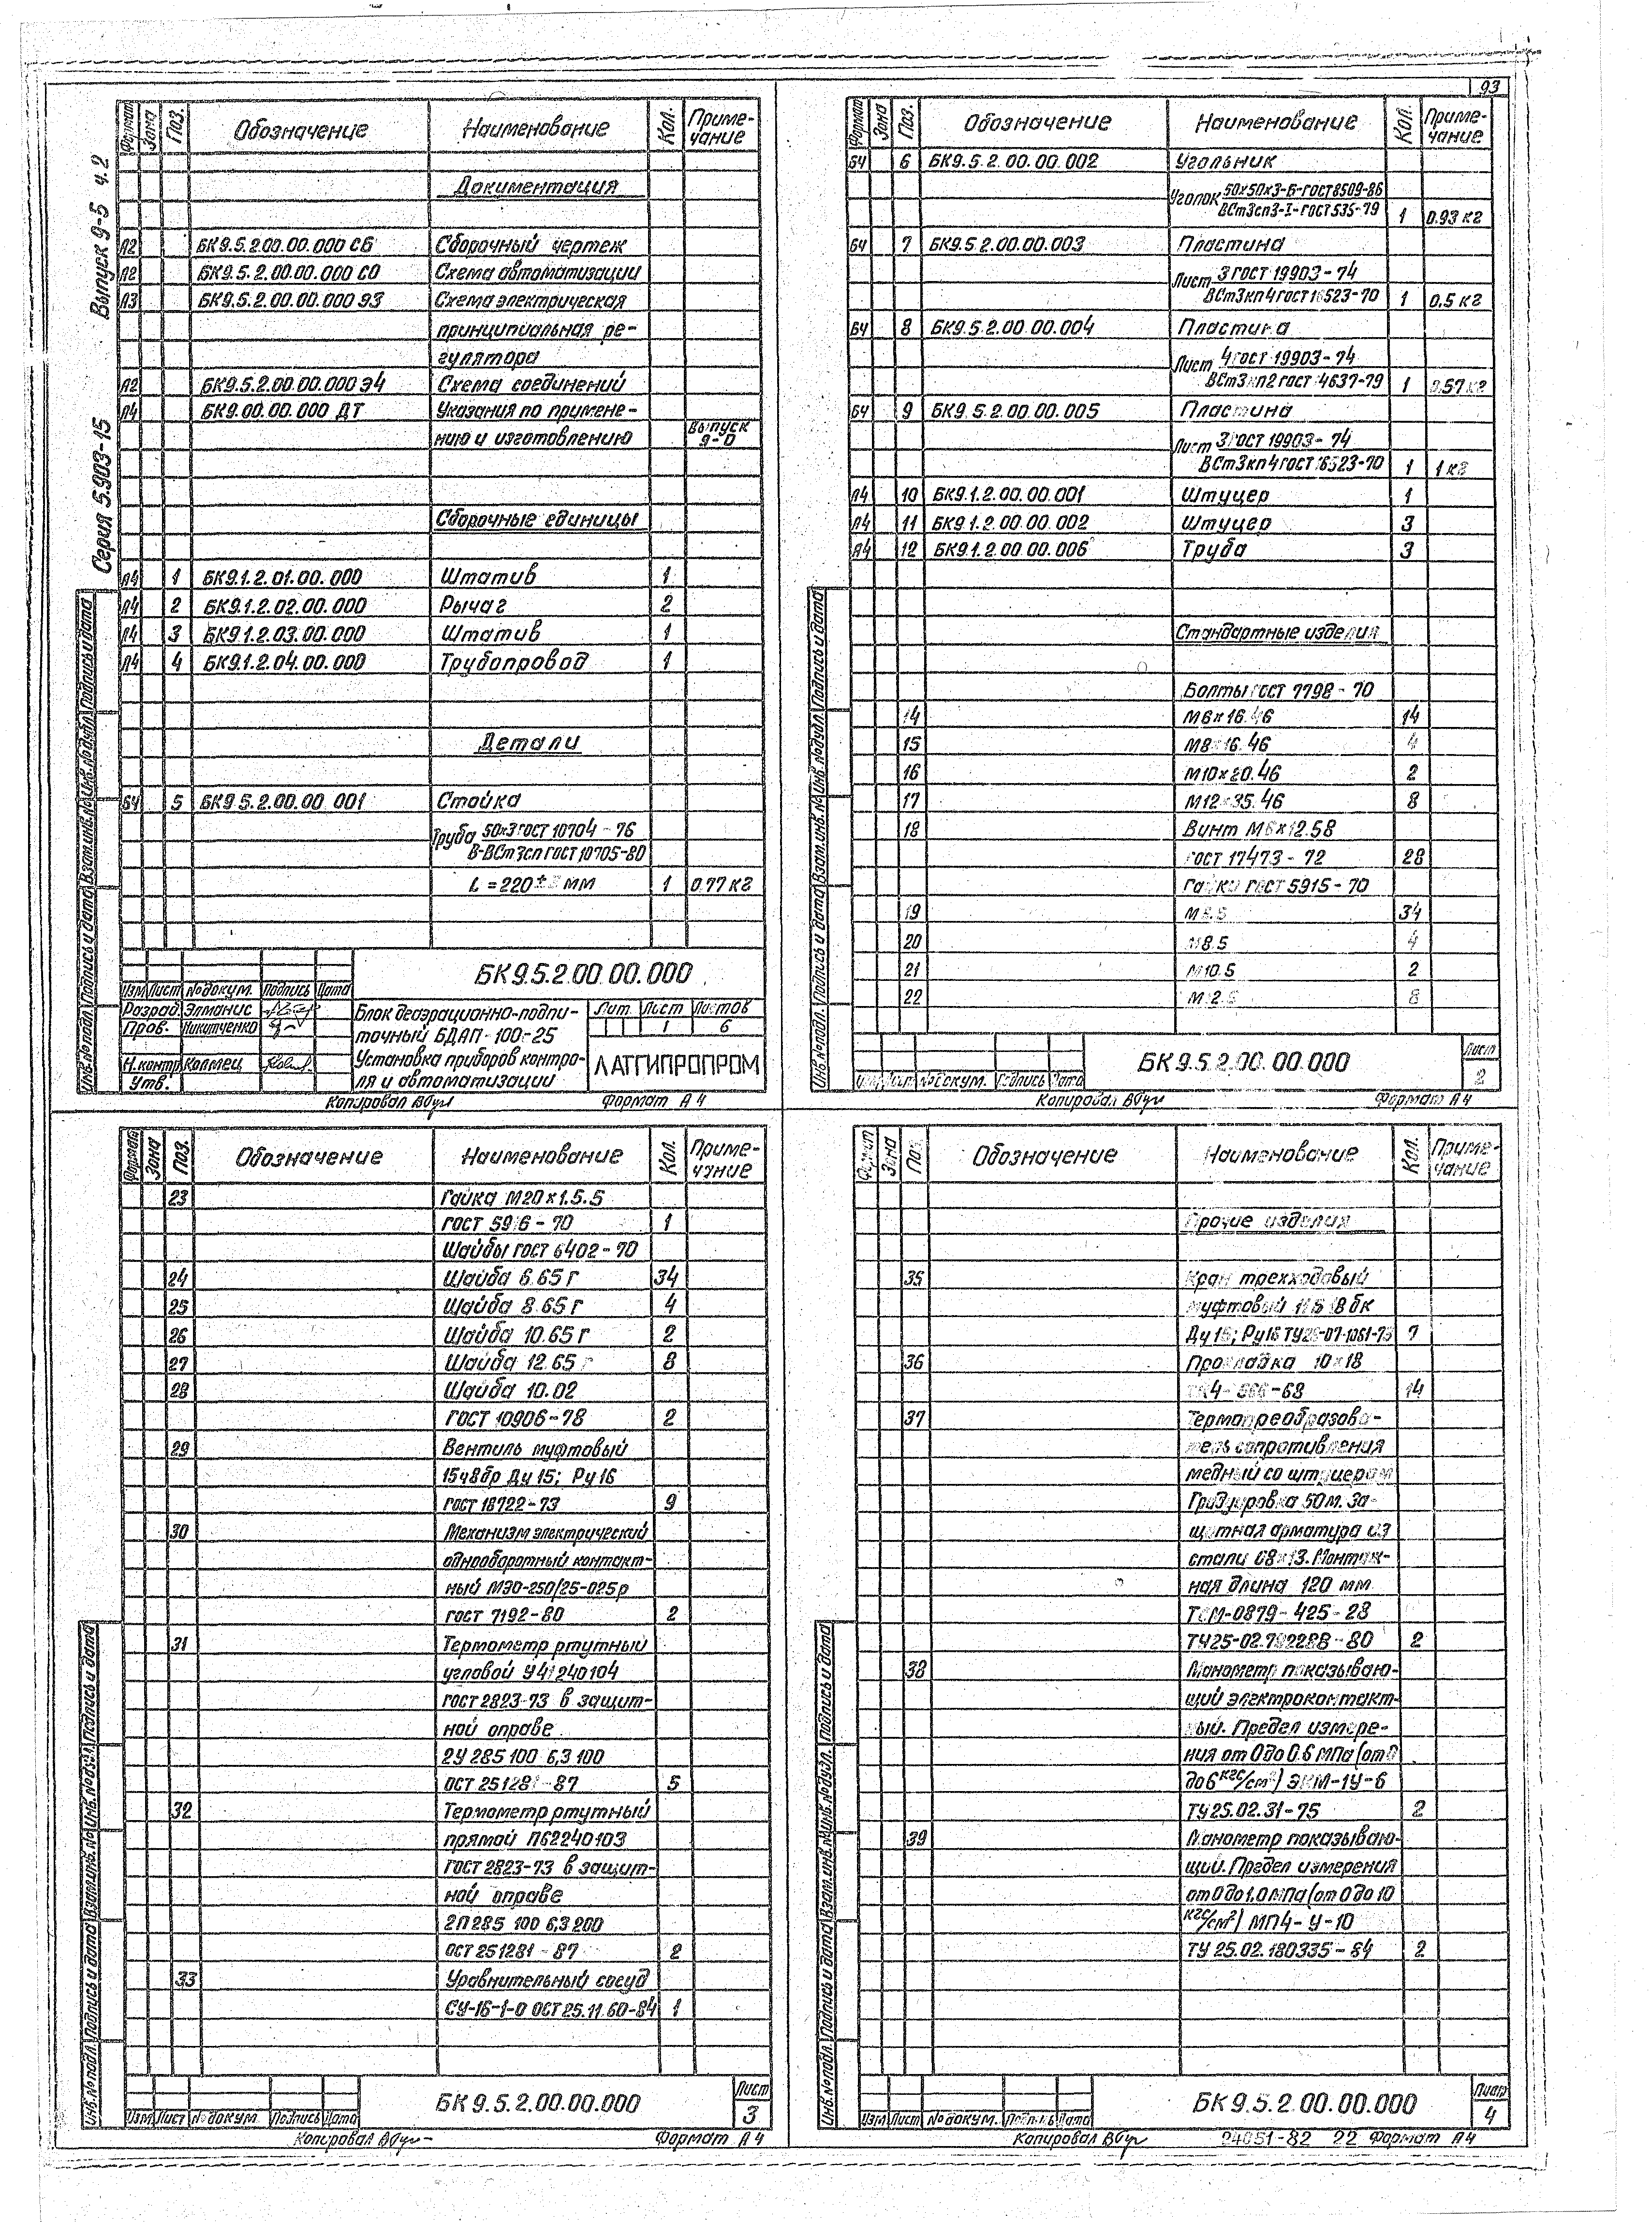 93
Серия 5.903-15 Выпуск 9-5 ч.2
Формат Зона Поз. Обозначение Наименование Кол. Приме-
чание
Документация
А2 БК9.5.2.00.00.000 СБ Сборочный чертеж
А2 БК9.5.2.00.00.000 СО Схема автоматизации
А3 БК9.5.2.00.00.000 Э3 Схема электрическая
принципиальная ре-
гулятора
А2 БК9.5.2.00.00.000 Э4 Схема соединений
А4 БК9.00.00.000 ДТ Указания по примене-
нию и изготовлению Выпуск
9-0
Сборочные единицы
А4 1 БК9.1.2.01.00.000 Штатив 1
А4 2 БК9.1.2.02.00.000 Рычаг 2
А4 3 БК9.1.2.03.00.000 Штатив 1
А4 4 БК9.1.2.04.00.000 Трубопровод 1
Детали
БЧ 5 БК9.5.2.00.00.001 Стойка
Труба 50×3 ГОСТ 10704-76
В-ВСт3сп ГОСТ 10705-80
L=220± мм 1 0.77 кг
БК9.5.2.00.00.000
Изм Лист № докум. Подпись Дата
Разраб. Элманис
Пров. Никитченко
Н.контр. Колмец
Утв.
Блок деаэрационно-подпи-
точный БДАП-100-25
Установка приборов контро-
ля и автоматизации
Лит. Лист Листов
1 6
ЛАТГИПРОПРОМ
Инв.№подл. Подпись и дата Взам.инв.№ Инв.№дубл. Подпись и дата
Копировал Формат А4
Формат Зона Поз. Обозначение Наименование Кол. Приме-
чание
БЧ 6 БК9.5.2.00.00.002 Угольник
Уголок 50×50×3-Б-ГОСТ 8509-86
ВСт3сп3-I-ГОСТ 535-79 1 0.93 кг
БЧ 7 БК9.5.2.00.00.003 Пластина
Лист 3 ГОСТ 19903-74
ВСт3кп4 ГОСТ 16523-70 1 0.5 кг
БЧ 8 БК9.5.2.00.00.004 Пластина
Лист 4 ГОСТ 19903-74
ВСт3кп2 ГОСТ 14637-79 1 0.57 кг
БЧ 9 БК9.5.2.00.00.005 Пластина
Лист 3 ГОСТ 19903-74
ВСт3кп4 ГОСТ 16523-70 1 1 кг
А4 10 БК9.1.2.00.00.001 Штуцер 1
А4 11 БК9.1.2.00.00.002 Штуцер 3
А4 12 БК9.1.2.00.00.006 Труба 3
Стандартные изделия
Болты ГОСТ 7798-70
14 М6×16.46 14
15 М8×16.46 4
16 М10×20.46 2
17 М12×35.46 8
18 Винт М6×12.58
ГОСТ 17473-72 28
Гайки ГОСТ 5915-70
19 М6.5 34
20 М8.5 4
21 М10.5 2
22 М12.5 8
Инв.№подл. Подпись и дата Взам.инв.№ Инв.№дубл. Подпись и дата
Изм Лист № докум. Подпись Дата
БК9.5.2.00.00.000 Лист
2
Копировал Формат А4
Формат Зона Поз. Обозначение Наименование Кол. Приме-
чание
23 Гайка М20×1.5.5
ГОСТ 5916-70 1
Шайбы ГОСТ 6402-70
24 Шайба 6.65Г 34
25 Шайба 8.65Г 4
26 Шайба 10.65Г 2
27 Шайба 12.65Г 8
28 Шайба 10.02
ГОСТ 10906-78 2
29 Вентиль муфтовый
15ч8бр Ду 15; Ру 16
ГОСТ 18722-73 9
30 Механизм электрический
однооборотный контакт-
ный МЭО-250/25-025р
ГОСТ 7192-80 2
31 Термометр ртутный
угловой У41240104
ГОСТ 2823-73 в защит-
ной оправе
2У 285 100 6,3 100
ОСТ 251281-87 5
32 Термометр ртутный
прямой П62240103
ГОСТ 2823-73 в защит-
ной оправе
2П 285 100 6,3 200
ОСТ 251281-87 2
33 Уравнительный сосуд
СУ-16-1-0 ОСТ 25.11.60-84 1
Инв.№подл. Подпись и дата Взам.инв.№ Инв.№дубл. Подпись и дата
Изм Лист № докум. Подпись Дата
БК9.5.2.00.00.000 Лист
3
Копировал Формат А4
Формат Зона Поз. Обозначение Наименование Кол. Приме-
чание
Прочие изделия
35 Кран трехходовый
муфтовый 11Б18бк
Ду 15; Ру16 ТУ26-07-1061-73 7
36 Прокладка 10×18
-68 14
37 Термопреобразова-
тель сопротивления
медный со штуцером
Градуировка 50м. За-
щитная арматура из
стали 08×13. Монтаж-
ная длина 120 мм
ТСМ-0879-425-28
ТУ25-02.792288-80 2
38 Манометр показываю-
щий электроконтакт-
ный. Предел измере-
ния от 0 до 0.6 МПа (от 0
до 6 кгс/см²) ЭКМ-1У-6
ТУ25.02.31-75 2
39 Манометр показываю-
щий. Предел измерения
от 0 до 1,0 МПа (от 0 до 10
кгс/см²) МП4-У-10
ТУ 25.02.180335-84 2
Инв.№подл. Подпись и дата Взам.инв.№ Инв.№дубл. Подпись и дата
Изм Лист № докум. Подпись Дата
БК9.5.2.00.00.000 Лист
4
Копировал 24051-82 22 Формат А4